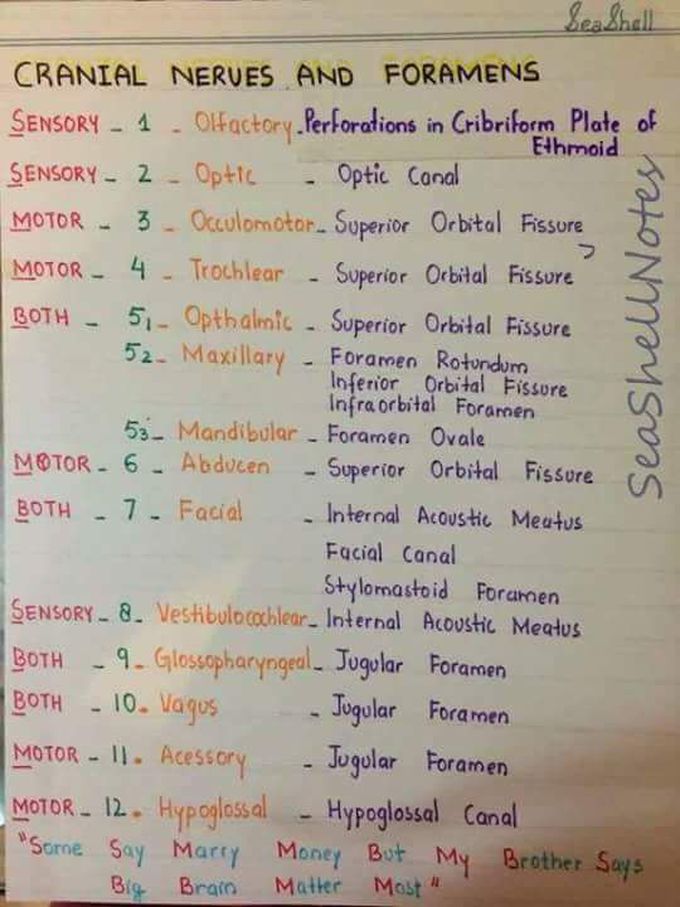 SeaShell
CRANIAL NERVES AND FORAMENS
SENSORY - 1 - Olfactory - Perforations in Cribriform Plate of
Ethmoid
SENSORY - 2 - Optic - Optic Canal
MOTOR - 3 - Occulomotor - Superior Orbital Fissure
MOTOR - 4 - Trochlear - Superior Orbital Fissure
BOTH - 51 - Opthalmic - Superior Orbital Fissure
52 - Maxillary - Foramen Rotundum
Inferior Orbital Fissure
Infraorbital Foramen
53 - Mandibular - Foramen Ovale
MOTOR - 6 - Abducen - Superior Orbital Fissure
BOTH - 7 - Facial - Internal Acoustic Meatus
Facial Canal
Stylomastoid Foramen
SENSORY - 8 - Vestibulocochlear - Internal Acoustic Meatus
BOTH - 9 - Glossopharyngeal - Jugular Foramen
BOTH - 10 - Vagus - Jugular Foramen
MOTOR - 11 - Acessory - Jugular Foramen
MOTOR - 12 - Hypoglossal - Hypoglossal Canal
"Some Say Marry Money But My Brother Says
Big Brain Matter Most"
SeaShellNotes